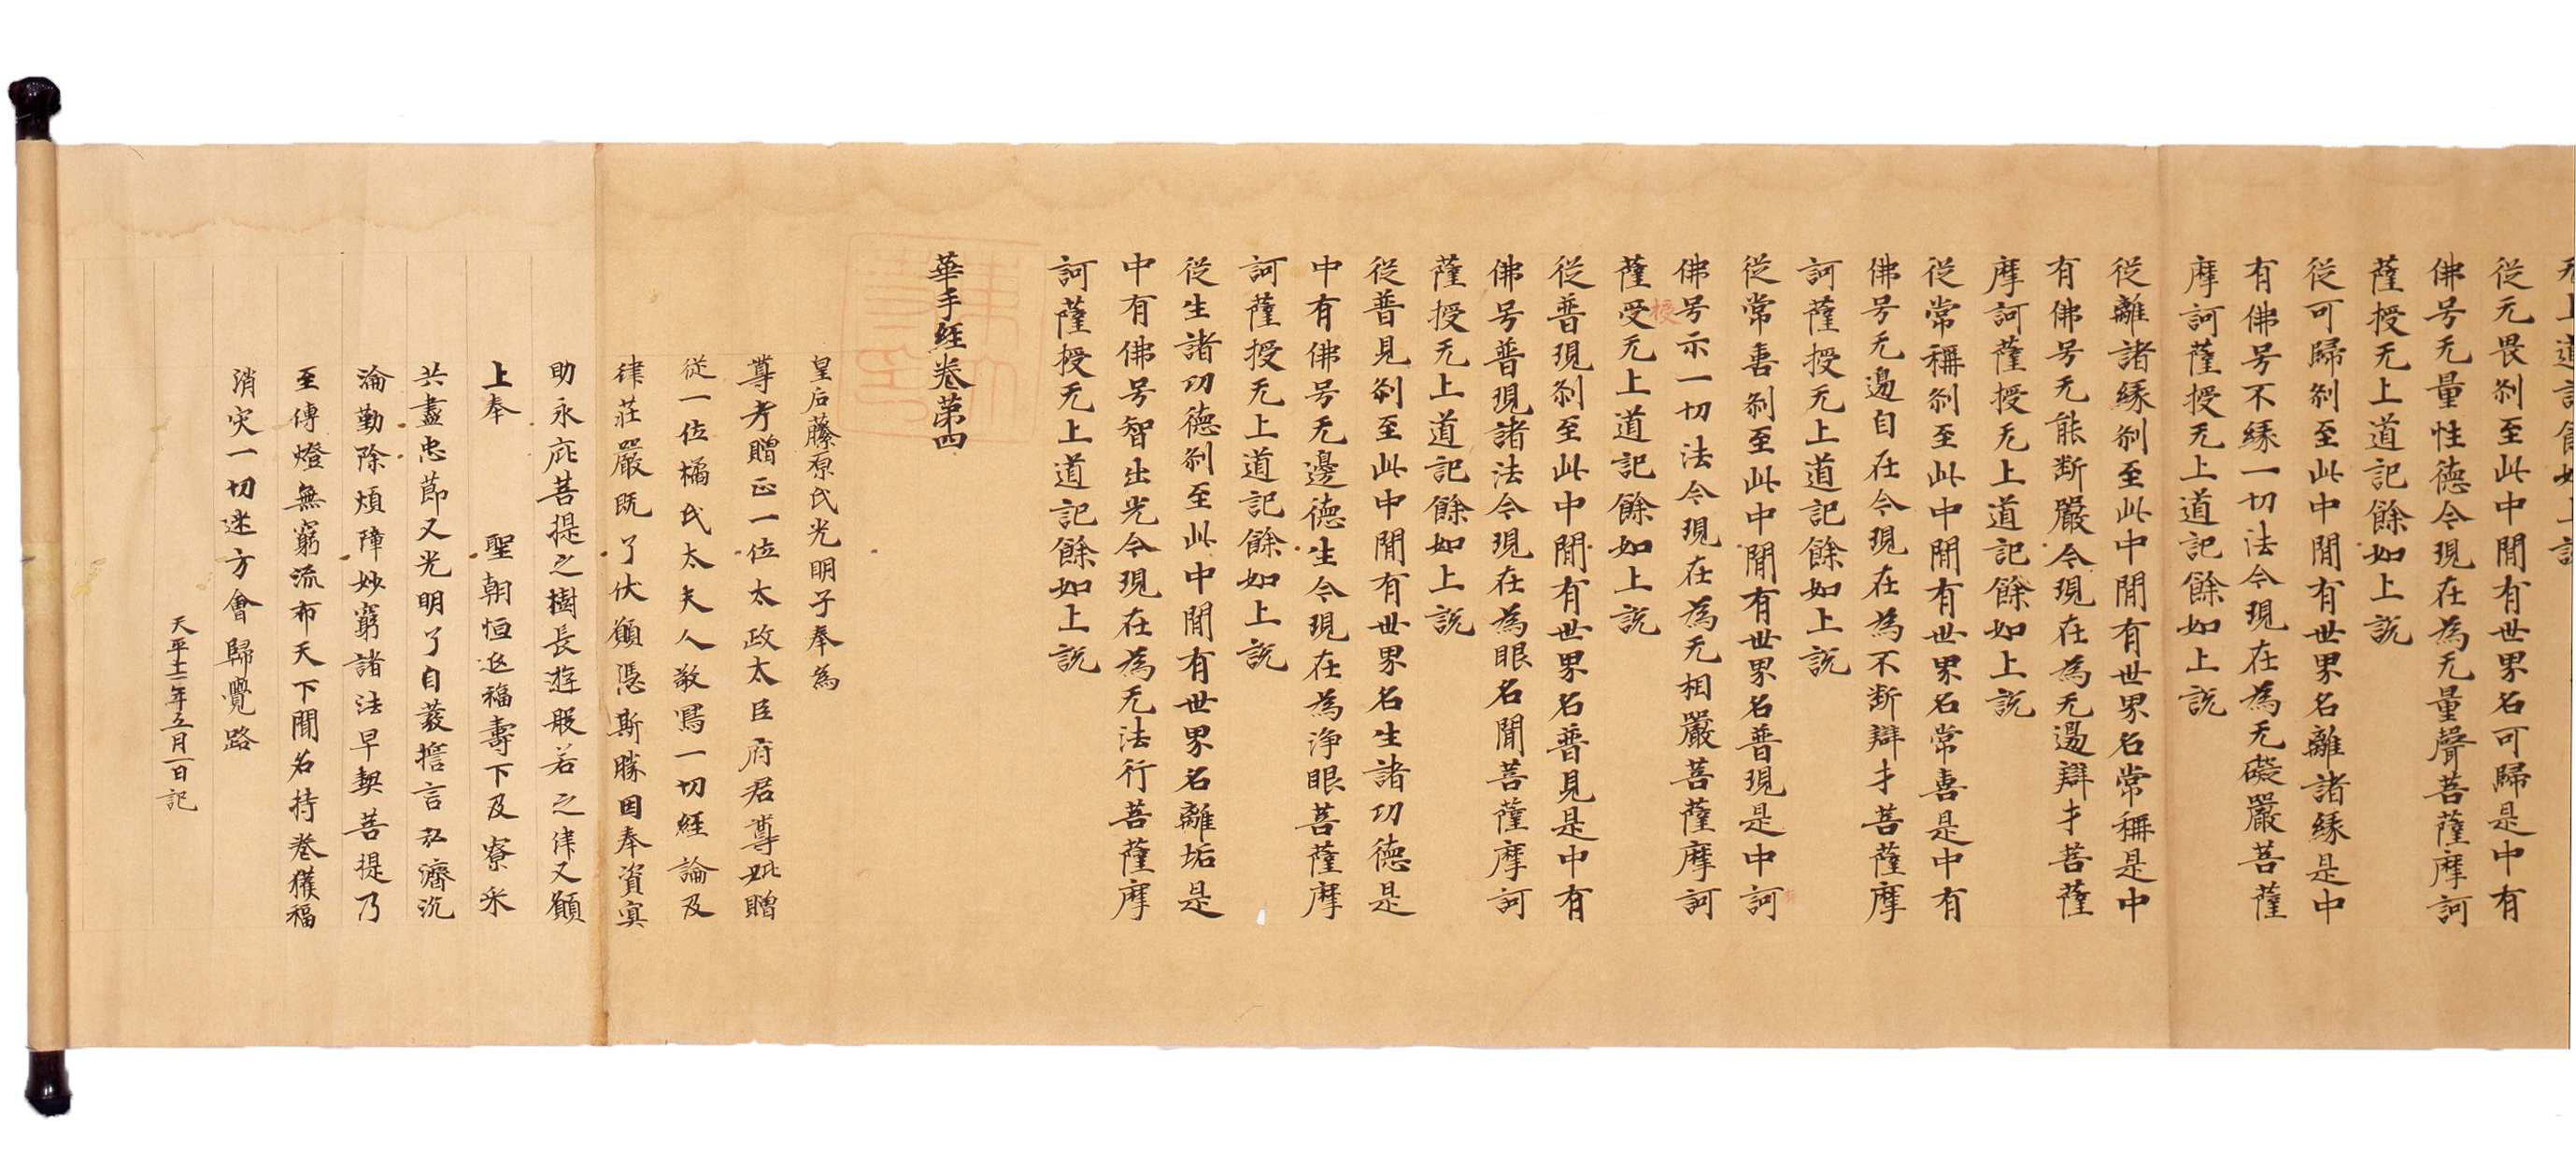 无上道記餘如上説
從无畏刹至此中閒有世界名可歸是中有
佛号无量性德今現在為无量聲菩薩摩訶
薩授无上道記餘如上説
從可歸刹至此中閒有世界名離諸緣是中
有佛号不緣一切法今現在為无礙嚴菩薩
摩訶薩授无上道記餘如上説
從離諸緣刹至此中閒有世界名常稱是中
有佛号无能断嚴今現在為无邊辯才菩薩
摩訶薩授无上道記餘如上説
從常稱刹至此中閒有世界名常喜是中有
佛号无邊自在今現在為不断辯才菩薩摩
訶薩授无上道記餘如上説
從常喜刹至此中閒有世界名普現是中訶
佛号示一切法今現在為无相嚴菩薩摩訶
薩受无上道記餘如上説
授
從普現刹至此中閒有世界名普見是中有
佛号普現諸法今現在為眼名聞菩薩摩訶
薩授无上道記餘如上説
從普見刹至此中閒有世界名生諸功德是
中有佛号无邊德生今現在為淨眼菩薩摩
訶薩授无上道記餘如上説
從生諸功德刹至此中閒有世界名離垢是
中有佛号智出光今現在為无法行菩薩摩
訶薩授无上道記餘如上説
華手經卷第四
皇后藤原氏光明子奉為
尊考贈正一位太政太臣府君尊妣贈
從一位橘氏太夫人敬寫一切經論及
律莊嚴既了伏願憑斯勝因奉資冥
助永庇菩提之樹長遊般若之津又願
上奉 聖朝恒迊福壽下及寮采
共盡忠節又光明子自發擔言弘濟沉
淪勤除煩障妙窮諸法早契菩提乃
至傳燈無窮流布天下聞名持卷獲福
消灾一切迷方會歸覺路
天平十二年五月一日記